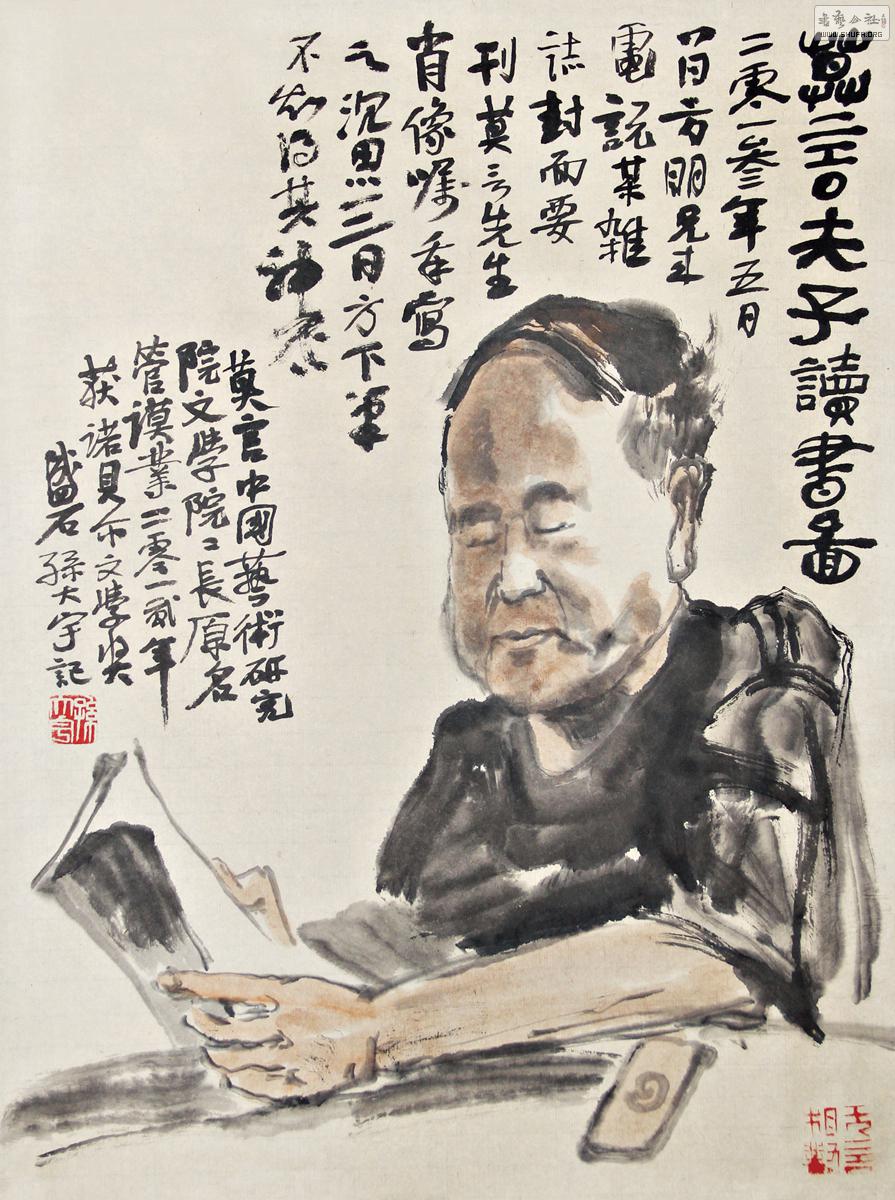 莫言夫子讀書啚
二零一叁年五月
日方明兄来
電説某雜
誌封面要
刊莫言先生
肖像囑余寫
之沉思三日方下筆
不知得其神否
莫言中國藝術研究
院文學院〻長原名
管謨業二零一貳年
获諾貝尔文學奖
盛石孫大宇記
孫大宇
書藝公社
WWW.SHUFA.ORG